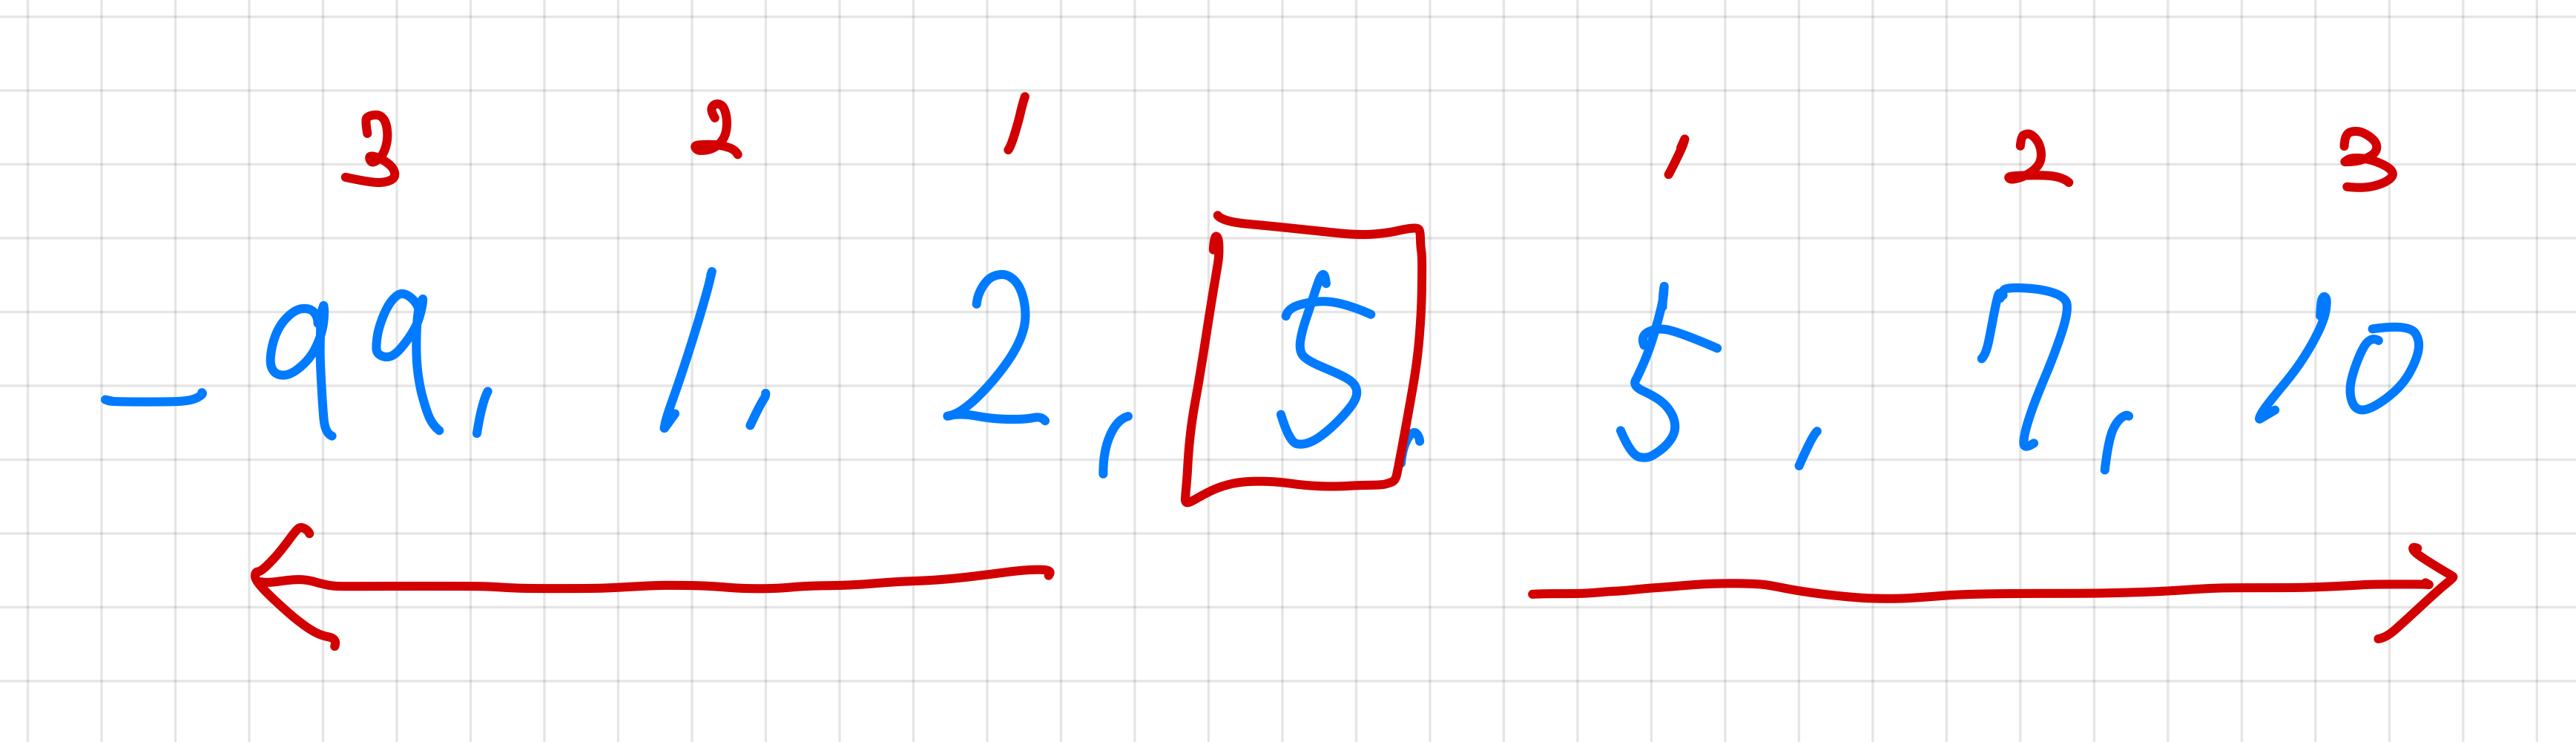 3 2 1 1 2 3
-99, 1, 2, 5, 5, 7, 10